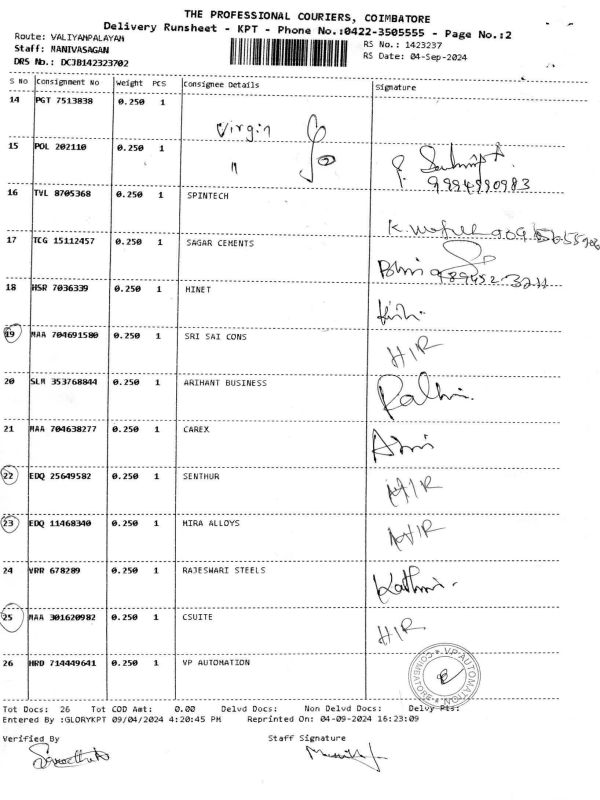 THE PROFESSIONAL COURIERS, COIMBATORE
Delivery Runsheet - KPT - Phone No.:0422-3505555 - Page No.:2
Route: VALIYAMPALAYAM
Staff: MANIVASAGAN
DRS No.: DCJB142323702
RS No.: 1423237
RS Date: 04-Sep-2024
S No Consignment No Weight PCS Consignee Details Signature
14 PGT 7513838 0.250 1 Virgin
15 POL 202110 0.250 1 "
9994990983
16 TVL 8705368 0.250 1 SPINTECH
17 TCG 15112457 0.250 1 SAGAR CEMENTS
18 HSR 7036339 0.250 1 MINET
19 MAA 704691580 0.250 1 SRI SAI CONS H/R
20 SLM 353768844 0.250 1 ARIHANT BUSINESS
21 MAA 704638277 0.250 1 CAREX
22 EDQ 25649582 0.250 1 SENTHUR H/R
23 EDQ 11468340 0.250 1 MIRA ALLOYS H/R
24 VRR 678289 0.250 1 RAJESWARI STEELS
25 MAA 301620982 0.250 1 CSUITE H/R
26 HRD 714449641 0.250 1 VP AUTOMATION VP AUTOMATION COIMBATORE
Tot Docs: 26 Tot COD Amt: 0.00 Delvd Docs: Non Delvd Docs: Delvy Pts:
Entered By :GLORYKPT 09/04/2024 4:20:45 PM Reprinted On: 04-09-2024 16:23:09
Verified By Staff Signature